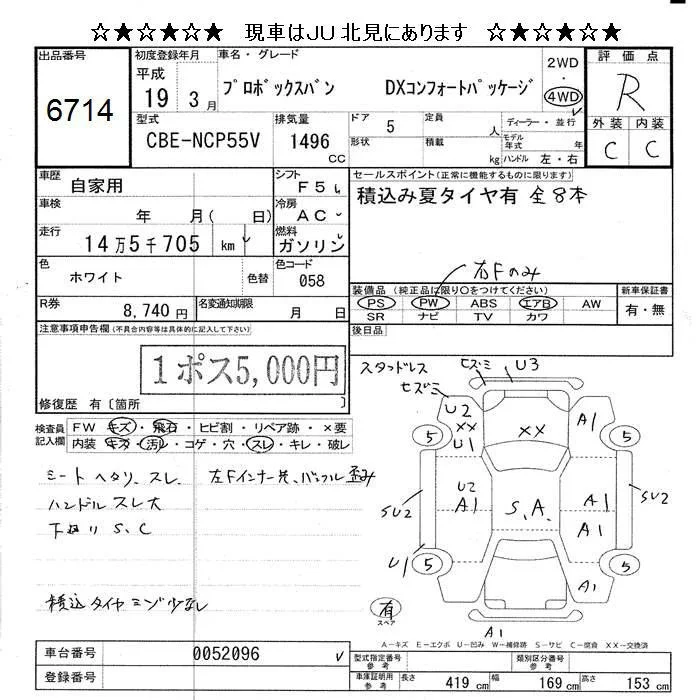 ☆★☆★☆★ 現車はJU北見にあります ☆★☆★☆★
出品番号 6714
初度登録年月 平成 19 3月
車名・グレード プロボックスバン DXコンフォートパッケージ
2WD・4WD
評価点 R
外装 内装
C C
型式 CBE-NCP55V
排気量 1496 CC
ドア 5 定員 人
形状 積載 kg
ディーラー・並行
モデル年式 年
ハンドル 左・右
車歴 自家用
シフト F5
車検 年 月( 日)
冷房 AC
走行 14万5千705 km
燃料 ガソリン
色 ホワイト 色替
色コード 058
R券 8,740円
名変通知期限 月 日
セールスポイント(正常に機能するものに限ります)
積込み夏タイヤ有 全8本
右Fのみ
装備品(純正品に限り○をつけてください)
PS PW ABS エアB AW
SR ナビ TV カワ
新車保証書
有・無
後日品
注意事項申告欄(不具合内容等は具体的に記入して下さい)
1ポス5,000円
修復歴 有〔箇所 〕
検査員記入欄
FW キズ・飛石・ヒビ割・リペア跡・×要
内装 キズ・汚レ・コゲ・穴・スレ・キレ・破レ
シートヘタリ、スレ
ハンドルスレ大
下回りS、C
積込タイヤミゾ少なし
左Fインナー欠、バッフル歪み
スタッドレス
ヒズミ U3
ヒズミ
U2
XX
U1
XX
A1
5 5
U2
A1
S.A.
A1
A1
SU2
SU2
U1
5 5
A1
有
スペア
A1
A－キズ E－エクボ U－凹み W－補修跡 S－サビ C－腐食 XX－交換済
車台番号 0052096
登録番号
型式指定番号 参考
類別区分番号 参考
車庫証明用 参考
長さ 419 cm 幅 169 cm 高さ 153 cm